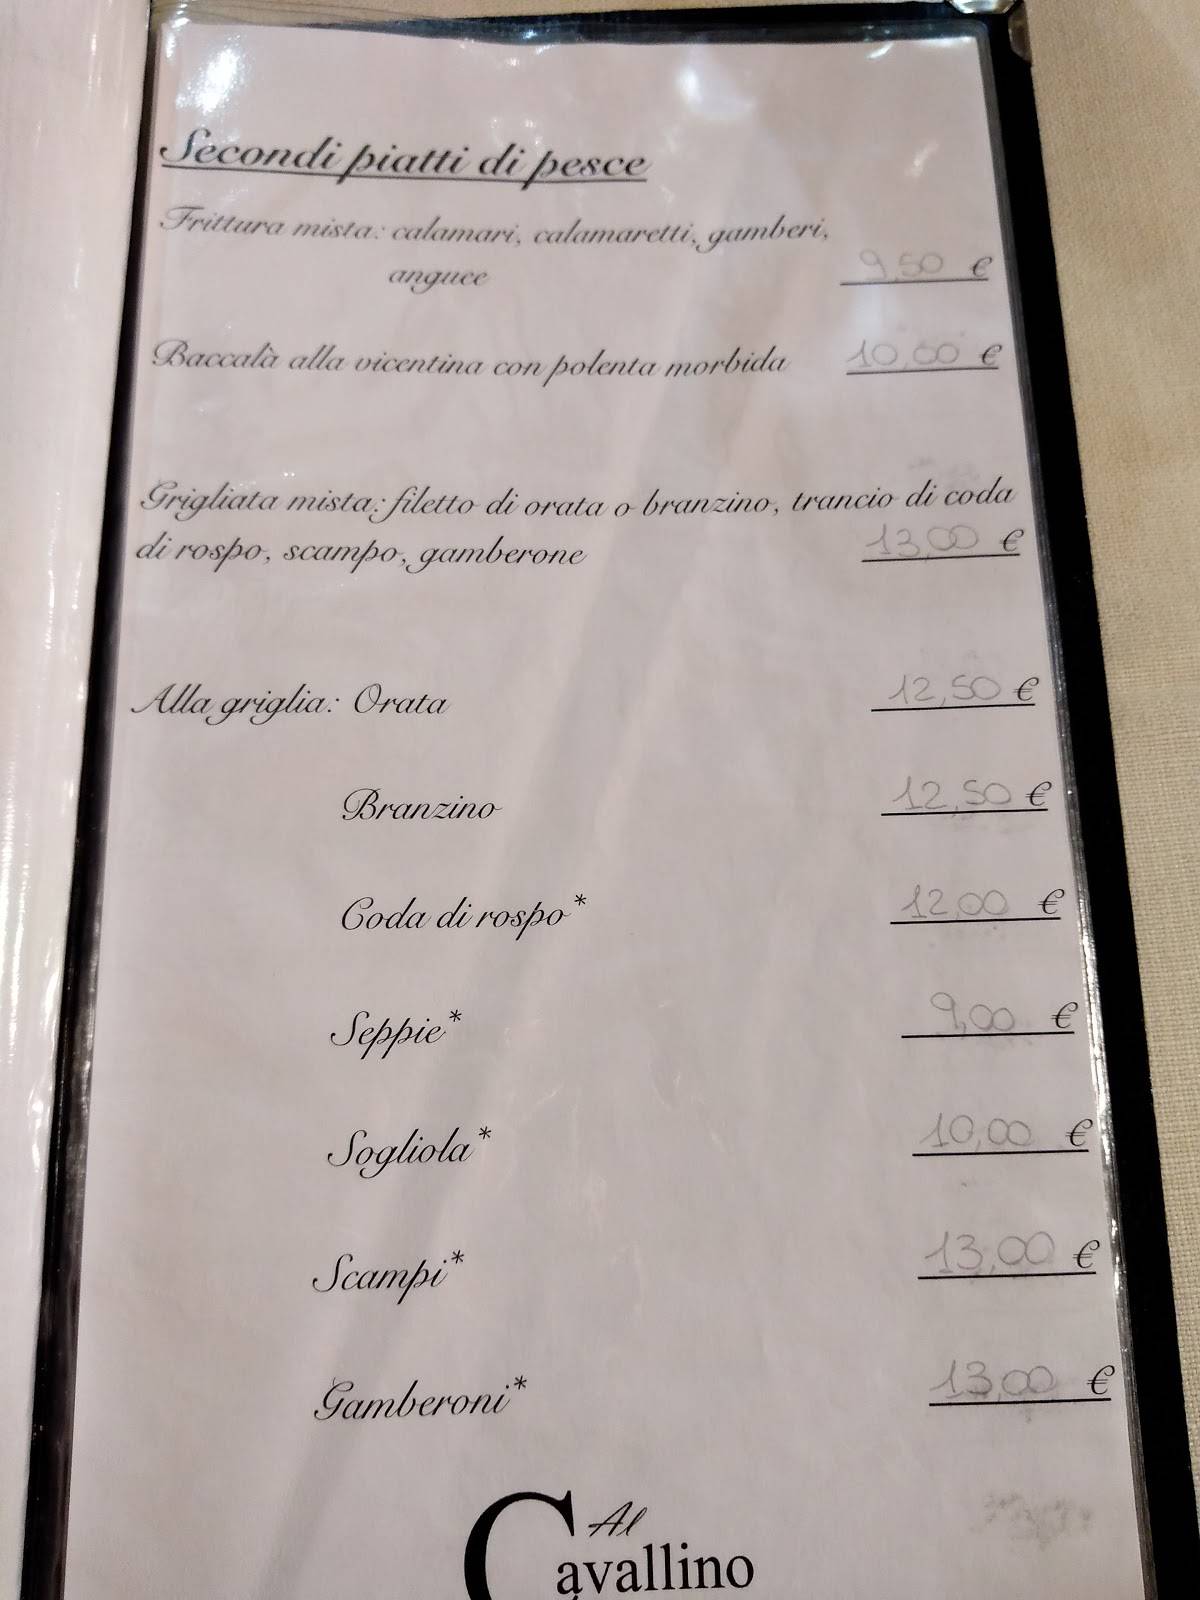 Secondi piatti di pesce
Frittura mista: calamari, calamaretti, gamberi,
anguee 9,50 €
Baccalà alla vicentina con polenta morbida 10,00 €
Grigliata mista: filetto di orata o branzino, trancio di coda
di rospo, scampo, gamberone 13,00 €
Alla griglia: Orata 12,50 €
Branzino 12,50 €
Coda di rospo* 12,00 €
Seppie* 9,00 €
Sogliola* 10,00 €
Scampi* 13,00 €
Gamberoni* 13,00 €
Al
Cavallino